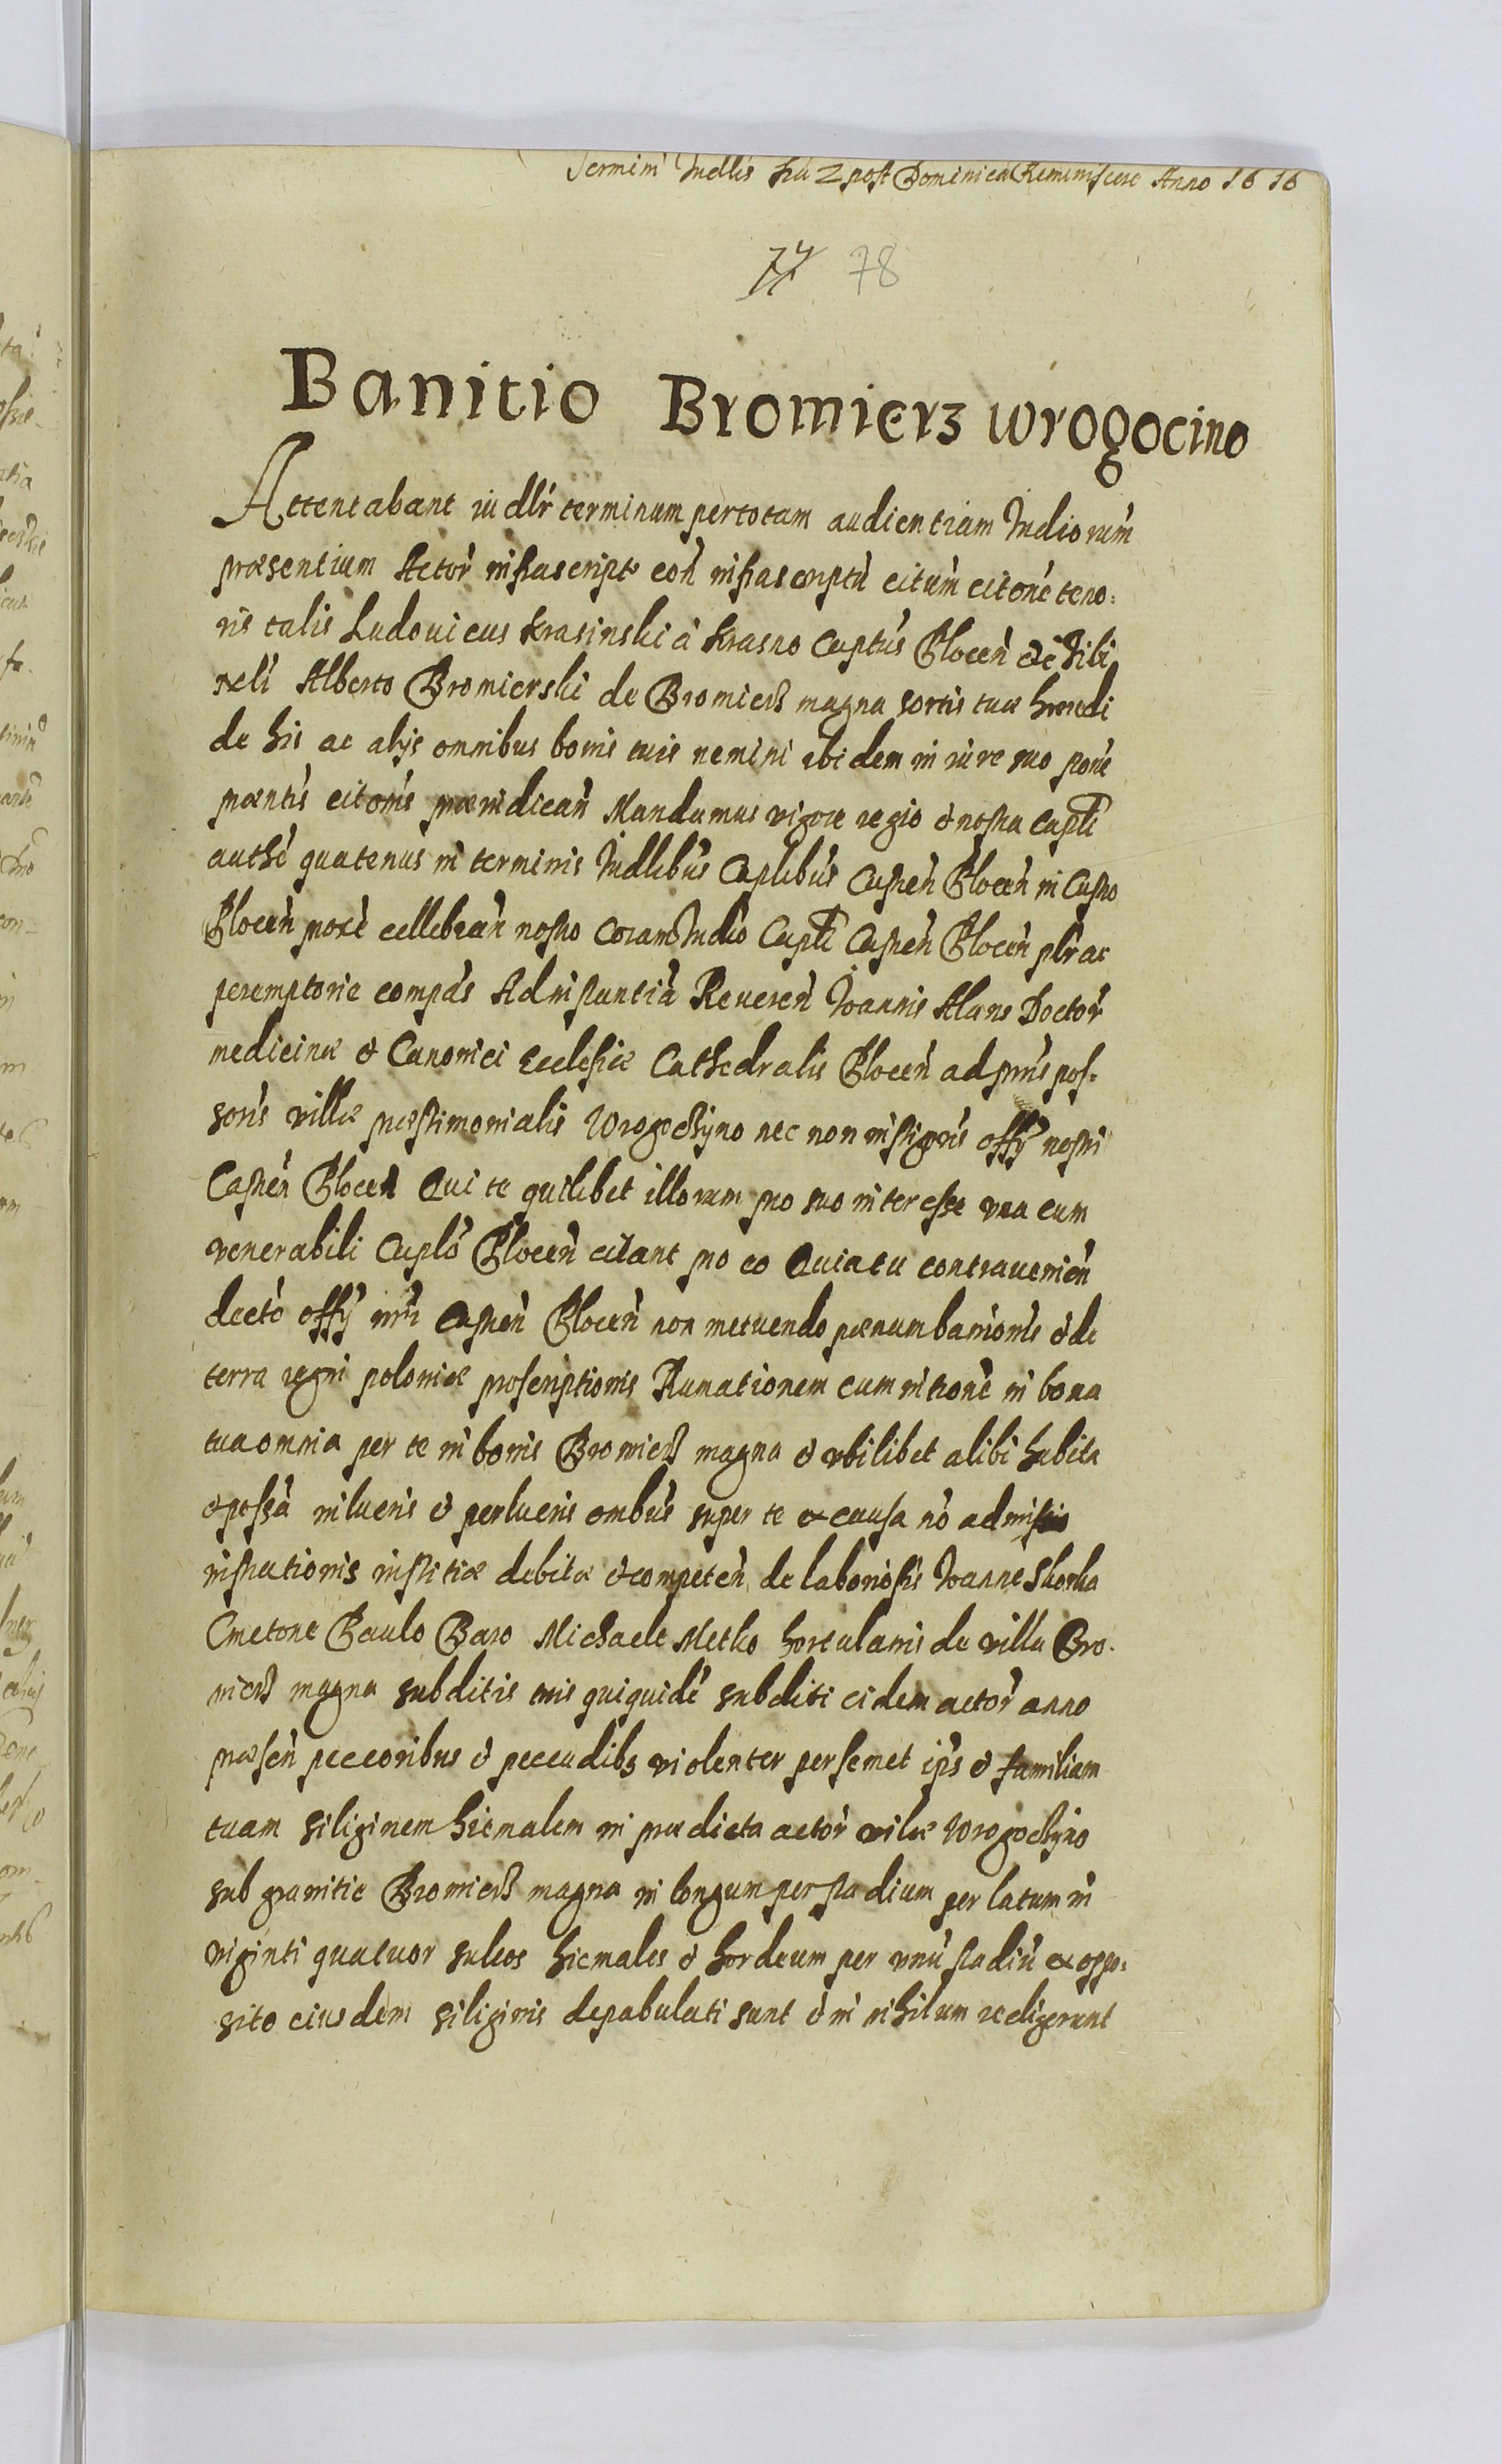 Termini Iudles fia 2 post Dominica Reminiscere Anno 1616
77 78
Banitio Bromierz wrogocino
Attentabant iudlr terminum per totam audientiam Indiorum
præsentium Actor infrascript con infrascriptu citum citone teno=
ris talis Ludouicus Krasinski a Krasno Captus Plocen etc Tibi
nebli Alberto Bromierski de Bromierz magna sortis tuæ hæredi
de his ac alijs omnibus bonis tuis nemini ibidem in iure suo pone
præntis citonis præiudican Mandamus vigore regio et nostra Captli
authe quatenus in terminis Iudlibus Caplibus Castren Plocen in Castro
Plocen proxe cellebran nostro coram Iudio Captli Castren Plocen plr ac
peremptorie compas Ad instantia Reueren Ioannis Alans Doctor
medicinæ et Canonici Ecclesiæ Cathedralis Plocen ad prns pos=
soris villæ præstimonialis Wrogoczyno nec non instigoris offy nostri
Castren Plocen Qui te quilibet illorum pro suo interesse vna cum
venerabili Caplo Plocen citant pro eo Quia tu contrauenien
decto offy nri Castren Plocen non metuendo pœnam banionis et de
terra regni poloniæ proscriptionis Rumationem cum intione in bona
tua omnia per te in bonis Bromierz magna et vbilibet alibi habita
et possa inlueris et perlueris ombus super te ex causa no admissio
nistrationis iustitiæ debitæ et competen de laboriosis Ioanne Skorka
Cmetone Paulo Baro Michaele Metko hortulanis de villa Bro=
mierz magna subditis tuis quiquide subditi eidem actor anno
præsen peccoribus et peccudibs violenter per semet ips et familiam
tuam siliginem hiemalem in prædicta actor villæ Wrogoczyno
sub granitie Bromierz magna in longum per stadium per latum in
viginti quatuor sulcos hiemales et hordeum per vnu stadiu ex oppo=
sito eiusdem siliginis depabulati sunt et in nihilum redigerunt